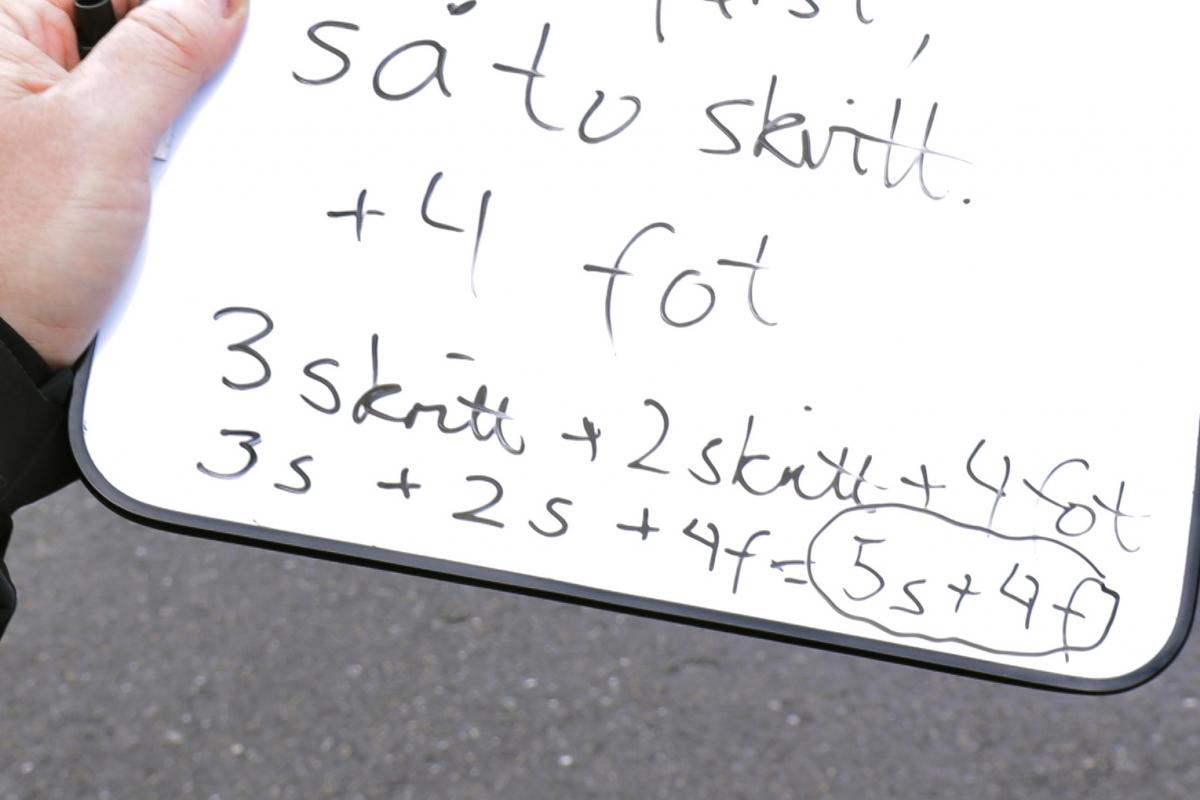 så to skritt.
+ 4 fot
3 skritt + 2 skritt + 4 fot
3s + 2s + 4f = 5s + 4f